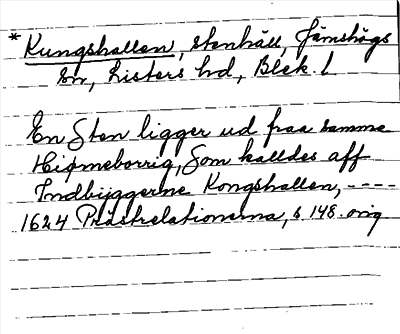 * Kungshallen, stenhäll, Jämshögs
sn, Listers hd, Blek. l
En Sten ligger ud fraa samme
Hiemeborrig, Som kalldes aff
Indbyggerne Kongshallen, ----
1624 Prästrelationerna, s. 148. orig